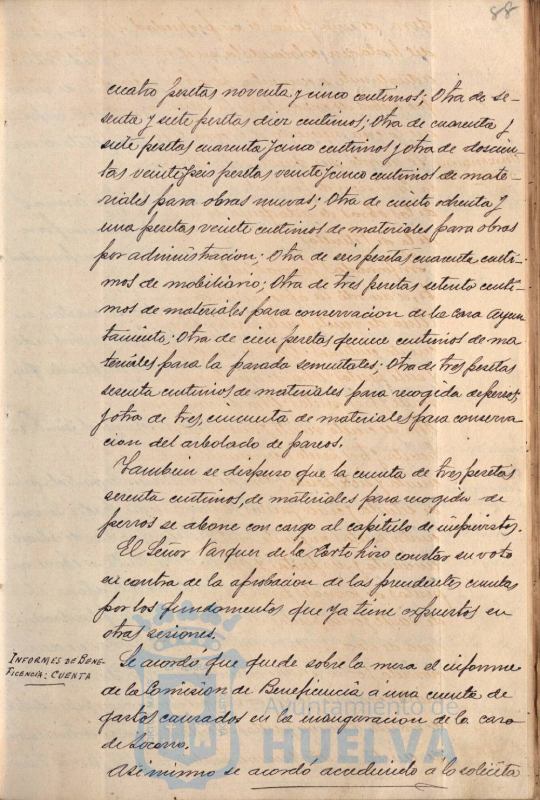 88
cuatro pesetas noventa y cinco centimos; Otra de se-
senta y siete pesetas diez centimos; Otra de cuarenta y
siete pesetas cuarenta y cinco centimos y otra de doscien-
tas veinte y seis pesetas veinte y cinco centimos de mate-
riales para obras nuevas; Otra de ciento ochenta y
una pesetas veinte centimos de materiales para obras
por administracion; Otra de seis pesetas cuarenta centi-
mos de mobiliario; Otra de tres pesetas setenta centi-
mos de materiales para conservacion de la Casa Ayun
tamiento; Otra de cien pesetas quince centimos de ma
teriales para la parada sementales; Otra de tres pesetas
sesenta centimos de materiales para recogida de perros,
y otra de tres, cincuenta de materiales para conserva
cion del arbolado de paseos.
Tambien se dispuso que la cuenta de tres pesetas
sesenta centimos, de materiales para recogida de
perros se abone con cargo al capitulo de imprevistos.
El Señor Vazquez de la Corte hizo constar su voto
en contra de la aprobacion de las precedentes cuentas
por los fundamentos que ya tiene expuestos en
otras sesiones.
INFORMES DE BENE-
FICENCIA: CUENTA
Se acordó que quede sobre la mesa el informe
de la Comision de Beneficencia á una cuenta de
gastos causados en la inauguracion de la casa
de Socorro.
Asi mismo se acordó accediendo á lo solicita
Ayuntamiento de
HUELVA